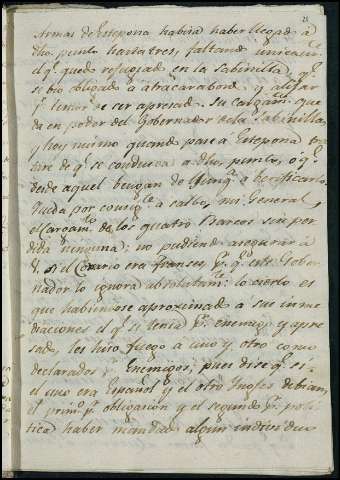 Armas de Estepona habian haber llegado á
dho. punto hasta tres, faltando unicamte.
el qe. quedo refugiado en la Sabinilla, qe.
se bio obligado a abacar abordo y alijar
pr. temor de ser apresado. Su cargamto. que
da en poder del Gobernador de la Sabinilla,
y hoy mismo quando pase á Estepona tra
taré de qe. se conduzca a dho. punto, ó qe.
desde aquel bengan de Ximqe. a berificarlo.
Queda por consigte. a salbo, mi General,
el Cargamto. de los quatro Barcos sin per
dida ninguna: no pudiendo asegurar á
V. si el Corsario era frances, pr. qe. este Gober
nador lo ignora absolutamte.: lo cierto es
que habiendose aproximado a sus inme
diaciones el qe. se tenia pr. enemigo y apre
sado, les hizo fuego a uno y otro como
declarados pr. Enemigos; pues dise qe. si
el uno era Español y el otro Ingles debian,
el primo. pr. obligacion y el segundo pr. poli
tica haber mandado algun individuo